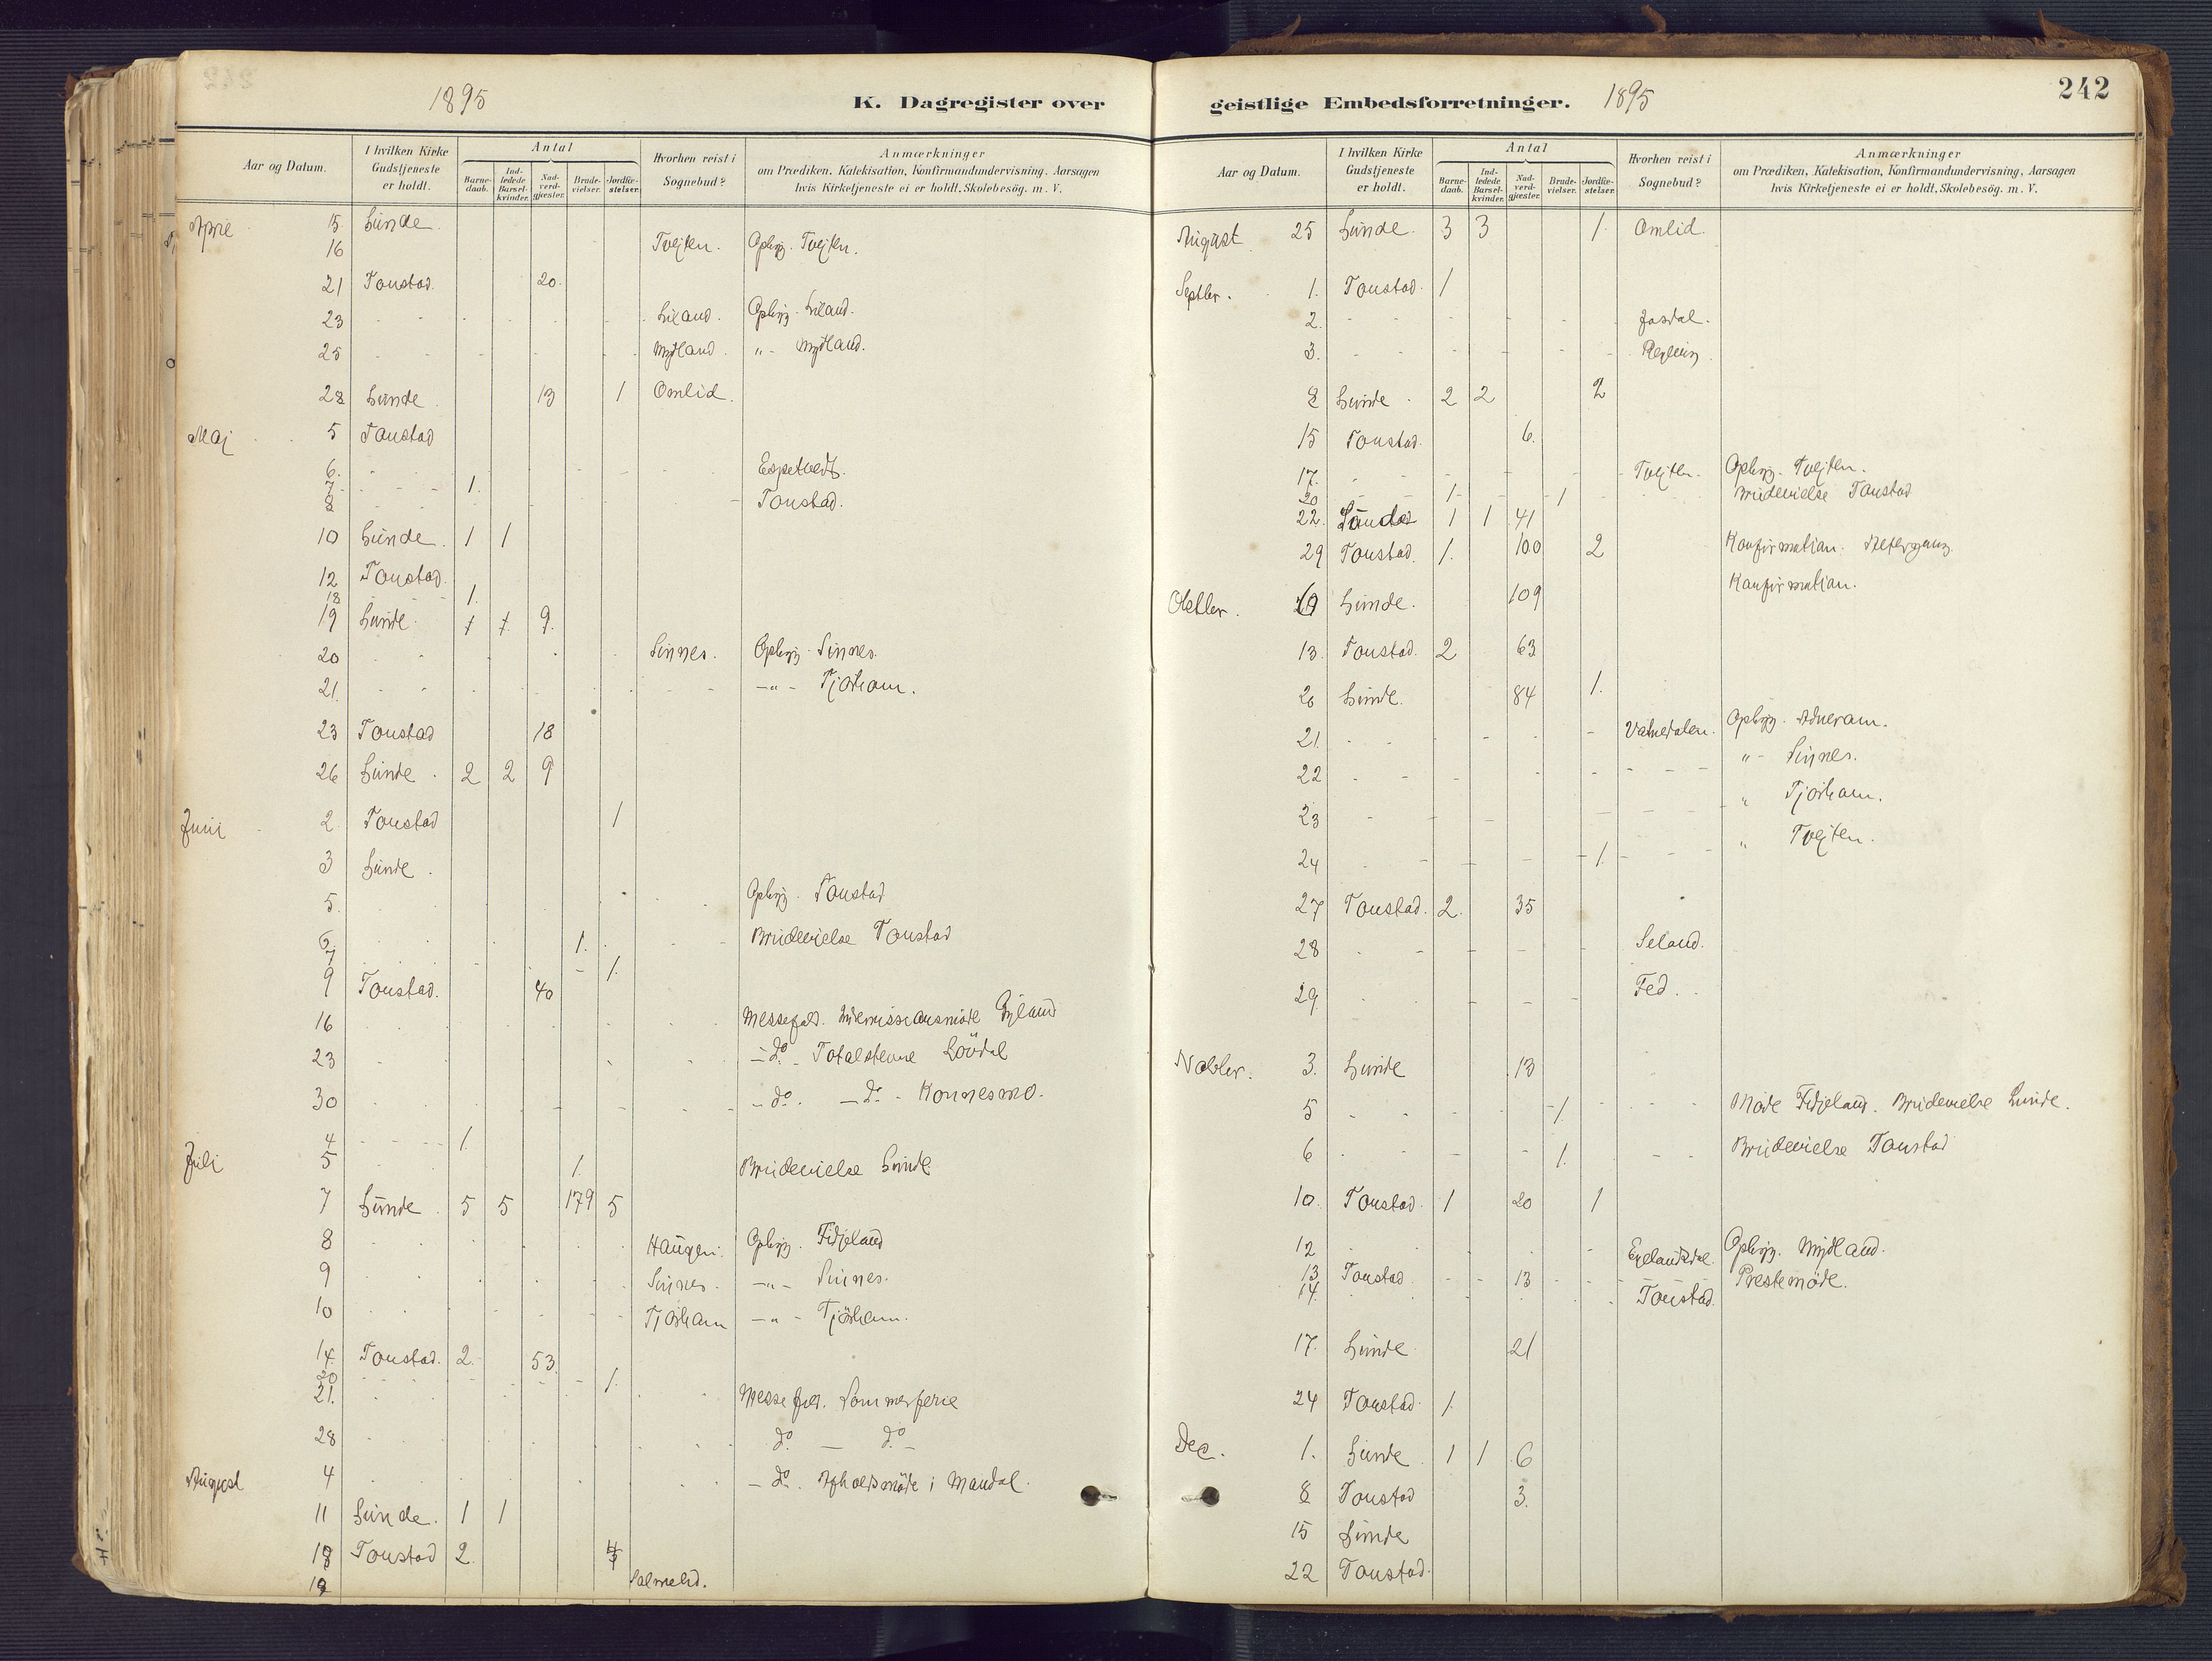 1895
K. Dagregister over
Aar og Datum.
I hvilken Kirke Gudstjeneste er holdt.
Antal
Barnedaab.
Indledede Barselkvinder.
Nadverdgjæster.
Brudevielser.
Jordfæstelser.
Hvorhen reist i Sognebud?
Anmærkninger
om Prædiken, Katekisation, Konfirmandundervisning, Aarsagen
hvis Kirketjeneste ei er holdt, Skolebesög. m. V.
15. Lunde
16 Tvejten. Opbyg. Tvejten.
21 Tonstad 20.
23 Liland. Opbyg. Liland.
25 Mydland. " - Mydland.
28 Lunde 13 1 Omlid.
Maj 5 Tonstad
6. Espetvedt.
7 1.
8 Tonstad.
10 Lunde. 1 1
12 Tonstad.
18 1.
19 Lunde. 1 1 9.
20 Sinnes. Opbyg. Sinnes.
21. -"- Tjörham.
23 Tonstad 18
26 Lunde. 2 2 9
Juni 2 Tonstad 1
3 Lunde.
5. Opbyg. Tonstad
6. 1. Brudevielse Tonstad
7 1.
9 Tonstad. 40
16 Messefald. Indremissionsmöde Gyland
23 - do - Totalstevne
30 - do. - do - Konnesmo.
Juli 4 1.
5 1. Brudevielse Lunde
7 Lunde. 5 5 179 5
8 Haugen. Opbyg. Fidjeland
9 Sinnes. -"- Sinnes.
10 Tjörham -"- Tjörham.
14. Tonstad. 2. 53.
20 1.
21. Messefald. Sommerferie
28 do - do -
August 4 - do. Afholdsmöde i Mandal.
11 Lunde. 1 1
18 Tonstad 2.
19
geistlige Embedsforretninger.
1895
242
Aar og Datum.
I hvilken Kirke Gudstjeneste er holdt.
Antal
Barnedaab.
Indledede Barselkvinder.
Nadverdgjæster.
Brudevielser.
Jordfæstelser.
Hvorhen reist i Sognebud?
Anmærkninger
om Prædiken, Katekisation, Konfirmandundervisning, Aarsagen
hvis Kirketjeneste ei er holdt, Skolebesög. m. V.
August 25 Lunde. 3 3 1. Omlid.
Septbr. 1. Tonstad. 1
2. Josdal.
3.
8 Lunde. 2 2 2
15 Tonstad. 6.
17. Tvejten. Opbyg. Tvejten.
20 1 1 Brudevielse Tonstad
22. 1 1 41
29 Tonstad. 1. 100 2 Konfirmation.
Oktbr. Lunde. 109 Konfirmation.
13. Tonstad. 2 63
20 Lunde. 84 1.
21. Opbyg. Adueram.
22 " - Sinnes.
23 " Tjörham.
24 1. " Tvejten.
27 Tonstad. 2. 35
28 Seland.
29. Fed.
Novbr. 3. Lunde 13
5 1. Möde Fidjeland. Brudevielse Lunde.
6 1. Brudevielse Tonstad
10. Tonstad. 1 20 1
12 Opbyg. Mydland.
13 Tonstad 13 Prestemöde.
14. Tonstad.
17. Lunde 21
24 Tonstad. 1.
Dec. 1. Lunde 1 1 6
8 Tonstad 3.
15 Lunde
22 Tonstad.